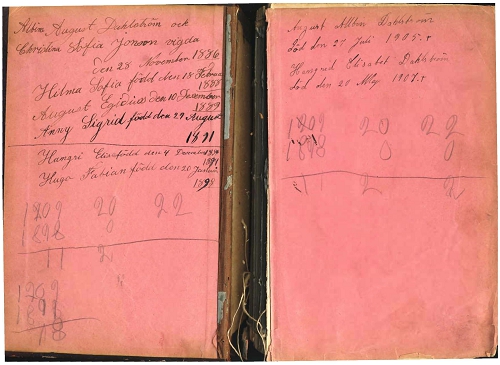 Albin August Dahlström och
Christina Sofia Jonson vigda
den 28 November 1886
Hilma Sofia född den 18 Februa
1888
August Egidius den 10 December
1889
Anny Sigrid född den 29 August
1891
född den 4
Hugo Fabian född den 20 Januari
1898
1909 20 22
1898 0
11 2
1909
1891
18
August Albin Dahlström
född den 27 Juli 1905
Elisabet Dahlström
född den 20 Maj 1907
1909 20 22
1898 0 0
11 2 2